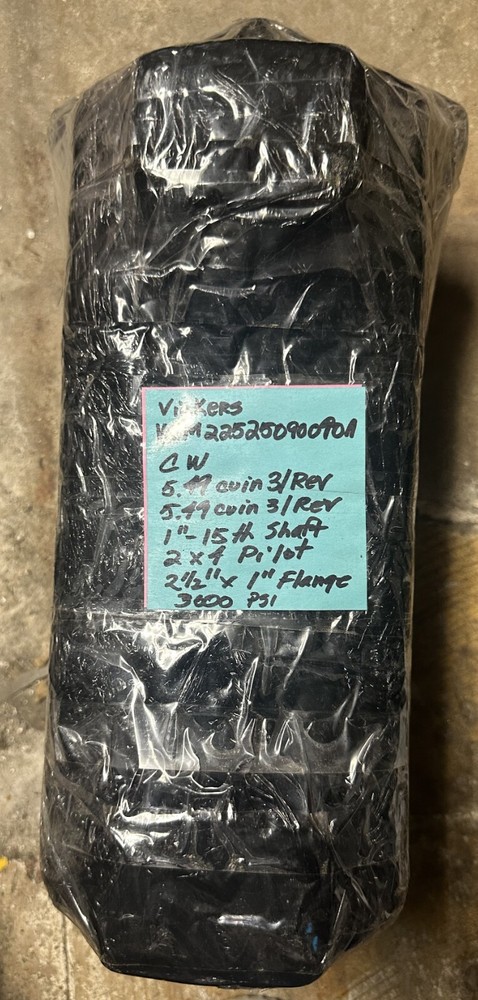 Vickers
CW
5.49 cuin 3/Rev
5.49 cuin 3/Rev
1"-15th Shaft
2x4 Pilot
2 1/2" x 1" Flange
3600 PSI